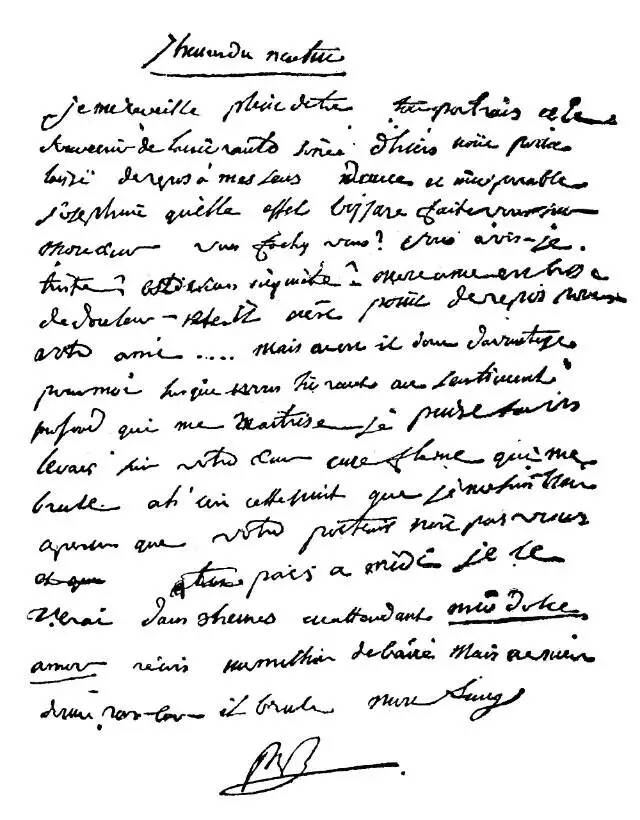 7 heures du matin
je me reveille plein de toi ton portrait et le
souvenir de l'enivrante soiré d'hiers n'ont point
laissé de repos a mes sens Douce et incomparable
josephine quelle effet bizzare faite vous sur
mon cœur vous fachez vous? vous vois-je
triste etes vous inquiete mon ame est brisé
de douleur et il n'est point de repos pour
votre ami ..... mais en est il donc davantage
pour moi lorsque vous livrant au sentiment
profond qui me maitrise je puise sur vos
levres sur votre cœur une flame qui me
brule ah! c'est cette nuit que je me suis bien
aperçu que votre portrait n'est pas vous
tu pars a midi je te
verai dans 3 heures en attendant mio dolce
amor recois un million de baisé mais ne m'en
donne pas car il brule mon sang